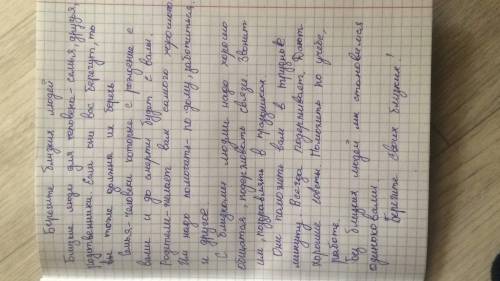 Берегите близких людей
Близкие люди для человека - семья, друзья,
родственники. Если они вас берегут, то
вы тоже должны их беречь.
Семья - человеки которые с рождение с
вами и до смерти будут с вами.
Родители - желает вам самого хорошого.
Им надо помогать - по дому, заботиться
и другое.
С близкими людми надо хорошо
общатся, поддерживать связи. Звонить
им, поздравлять в праздниках.
Они помогить вам в трудные
минуту. Всегда подерживает, Дают
хорошие советы. Помогить по учебе,
работе.
Без близких людей мы становимся
одинокими.
Берегите своих близких!